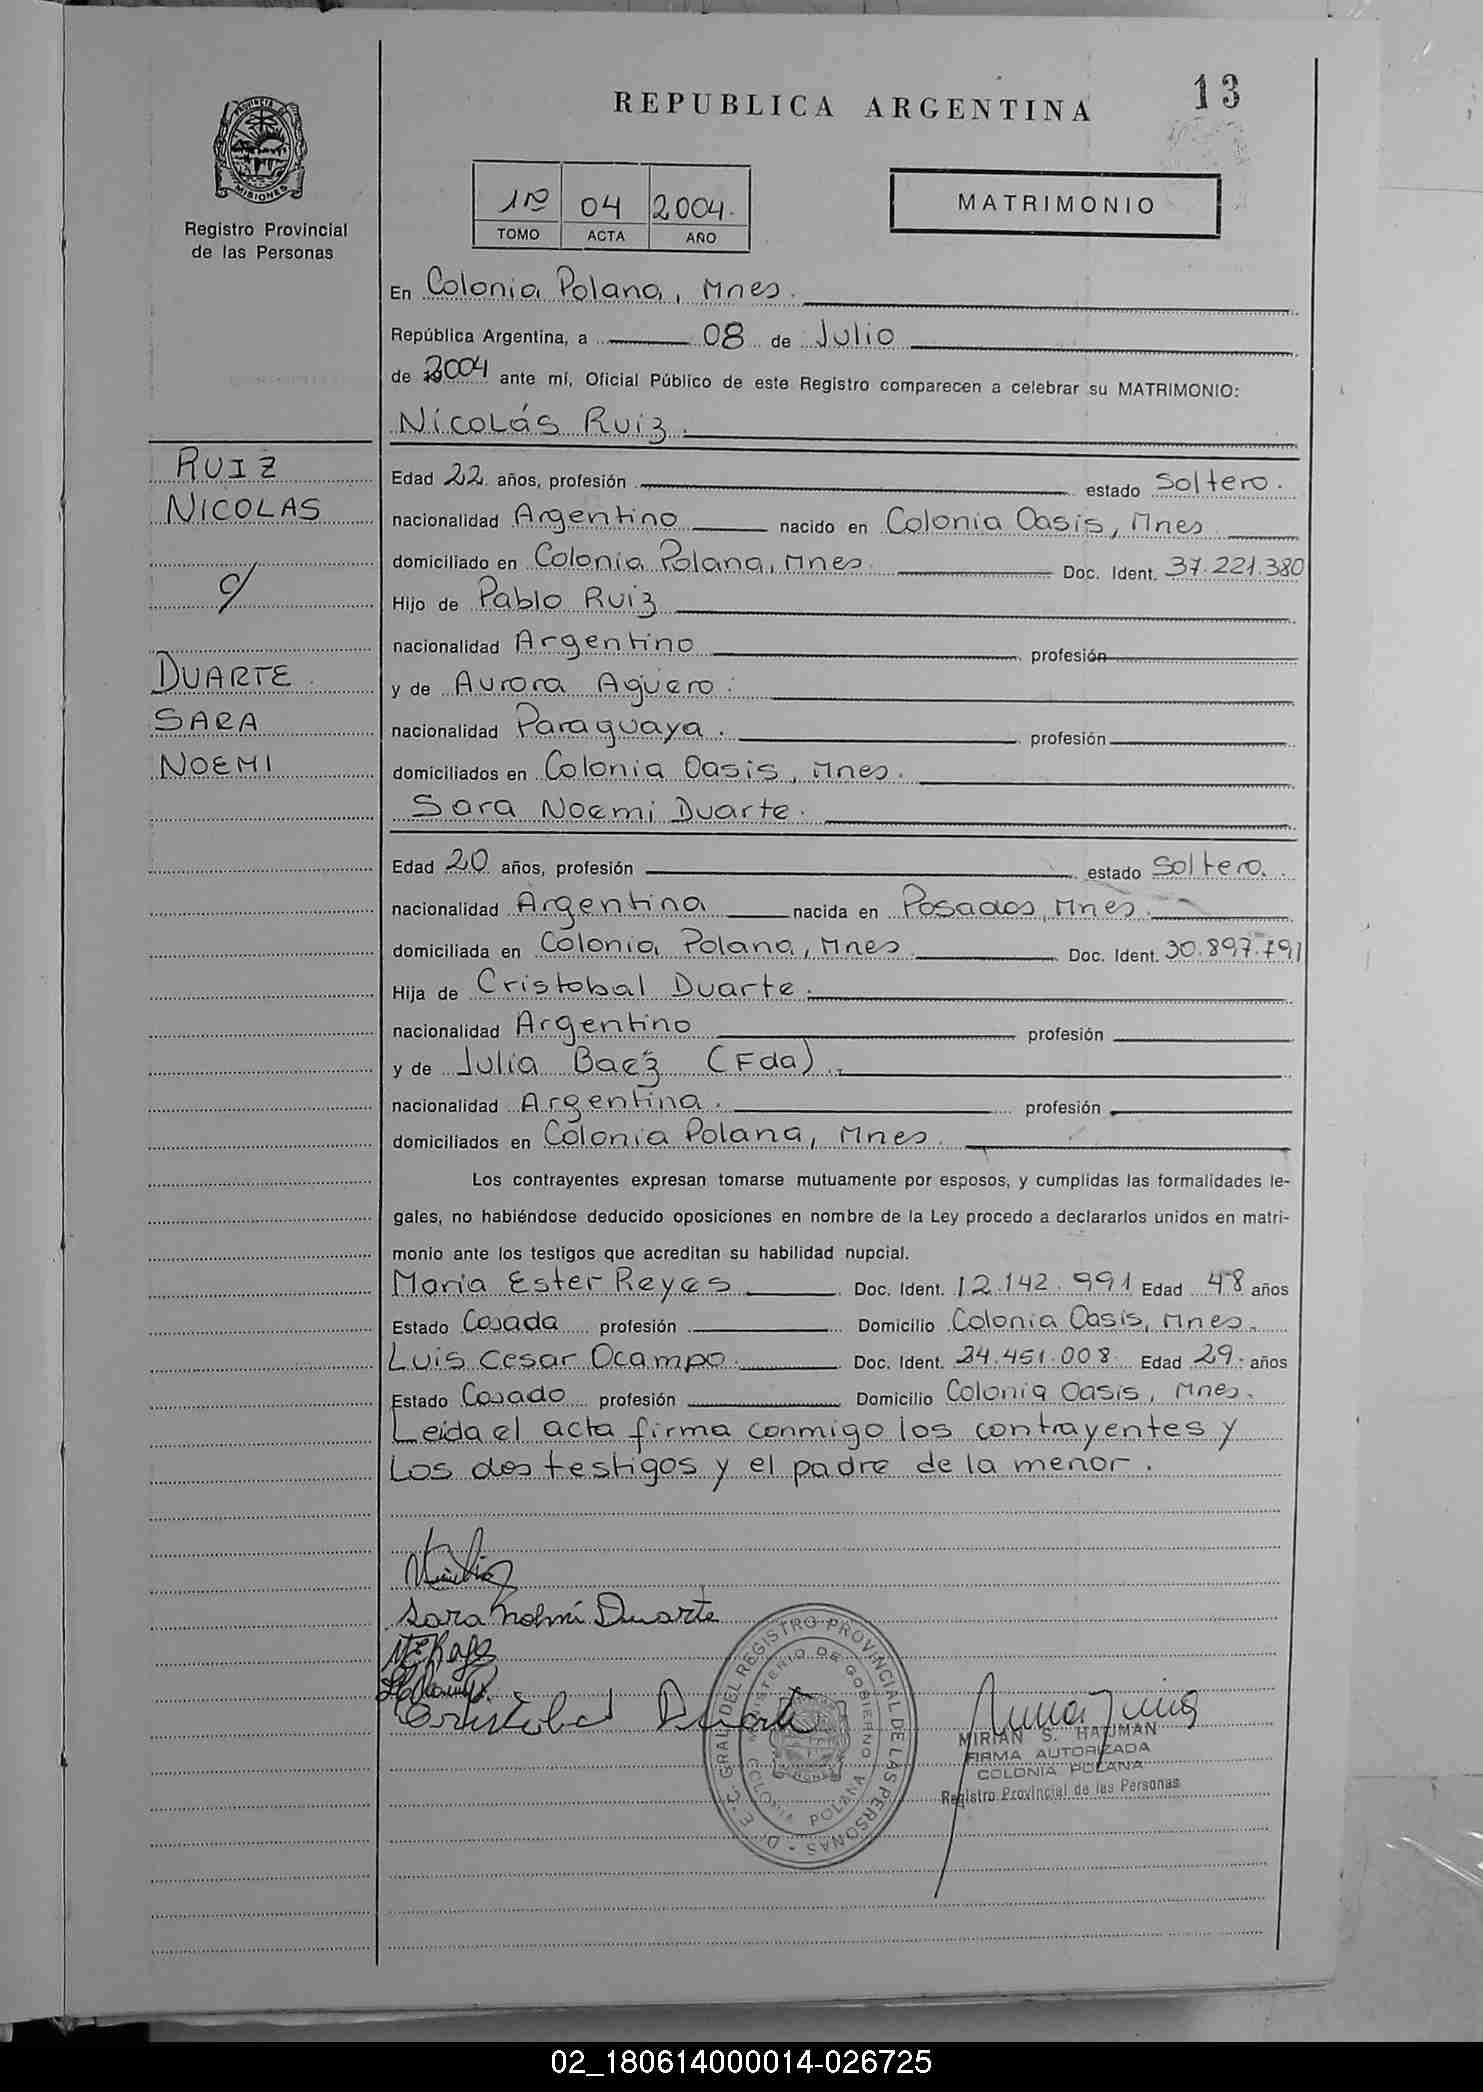 REPUBLICA ARGENTINA
13
PROVINCIA DE
MISIONES
Registro Provincial
de las Personas
1º 04 2004.
TOMO ACTA AÑO
MATRIMONIO
En Colonia Polana, Mnes.
República Argentina, a 08 de Julio
de 2004 ante mí, Oficial Público de este Registro comparecen a celebrar su MATRIMONIO:
Nicolás Ruiz.
RUIZ
NICOLAS
c/
DUARTE
SARA
NOEMI
Edad 22 años, profesión estado Soltero.
nacionalidad Argentino nacido en Colonia Oasis, Mnes
domiciliado en Colonia Polana, Mnes. Doc. Ident. 37.221.380
Hijo de Pablo Ruiz
nacionalidad Argentino profesión
y de Aurora Agüero.
nacionalidad Paraguaya. profesión
domiciliados en Colonia Oasis, Mnes.
Sara Noemi Duarte.
Edad 20 años, profesión estado Soltero.
nacionalidad Argentina nacida en Posadas, Mnes.
domiciliada en Colonia Polana, Mnes. Doc. Ident. 30.897.791
Hija de Cristobal Duarte.
nacionalidad Argentino profesión
y de Julia Baez (Fda).
nacionalidad Argentina. profesión
domiciliados en Colonia Polana, Mnes.
Los contrayentes expresan tomarse mutuamente por esposos, y cumplidas las formalidades le-
gales, no habiéndose deducido oposiciones en nombre de la Ley procedo a declararlos unidos en matri-
monio ante los testigos que acreditan su habilidad nupcial.
Maria Ester Reyes Doc. Ident. 12.142.991 Edad 48 años
Estado Casada profesión Domicilio Colonia Oasis, Mnes.
Luis Cesar Ocampo. Doc. Ident. 24.451.008 Edad 29 años
Estado Casado profesión Domicilio Colonia Oasis, Mnes.
Leida el acta firma conmigo los contrayentes y
los dos testigos y el padre de la menor.
Sara Nohmi Duarte
Cristobal Duarte
GRAL. DEL REGISTRO PROVINCIAL DE LAS PERSONAS
MINISTERIO DE GOBIERNO
COLONIA POLANA
MIRIAN S. HATJMAN
FIRMA AUTORIZADA
COLONIA POLANA
Registro Provincial de las Personas
02_180614000014-026725